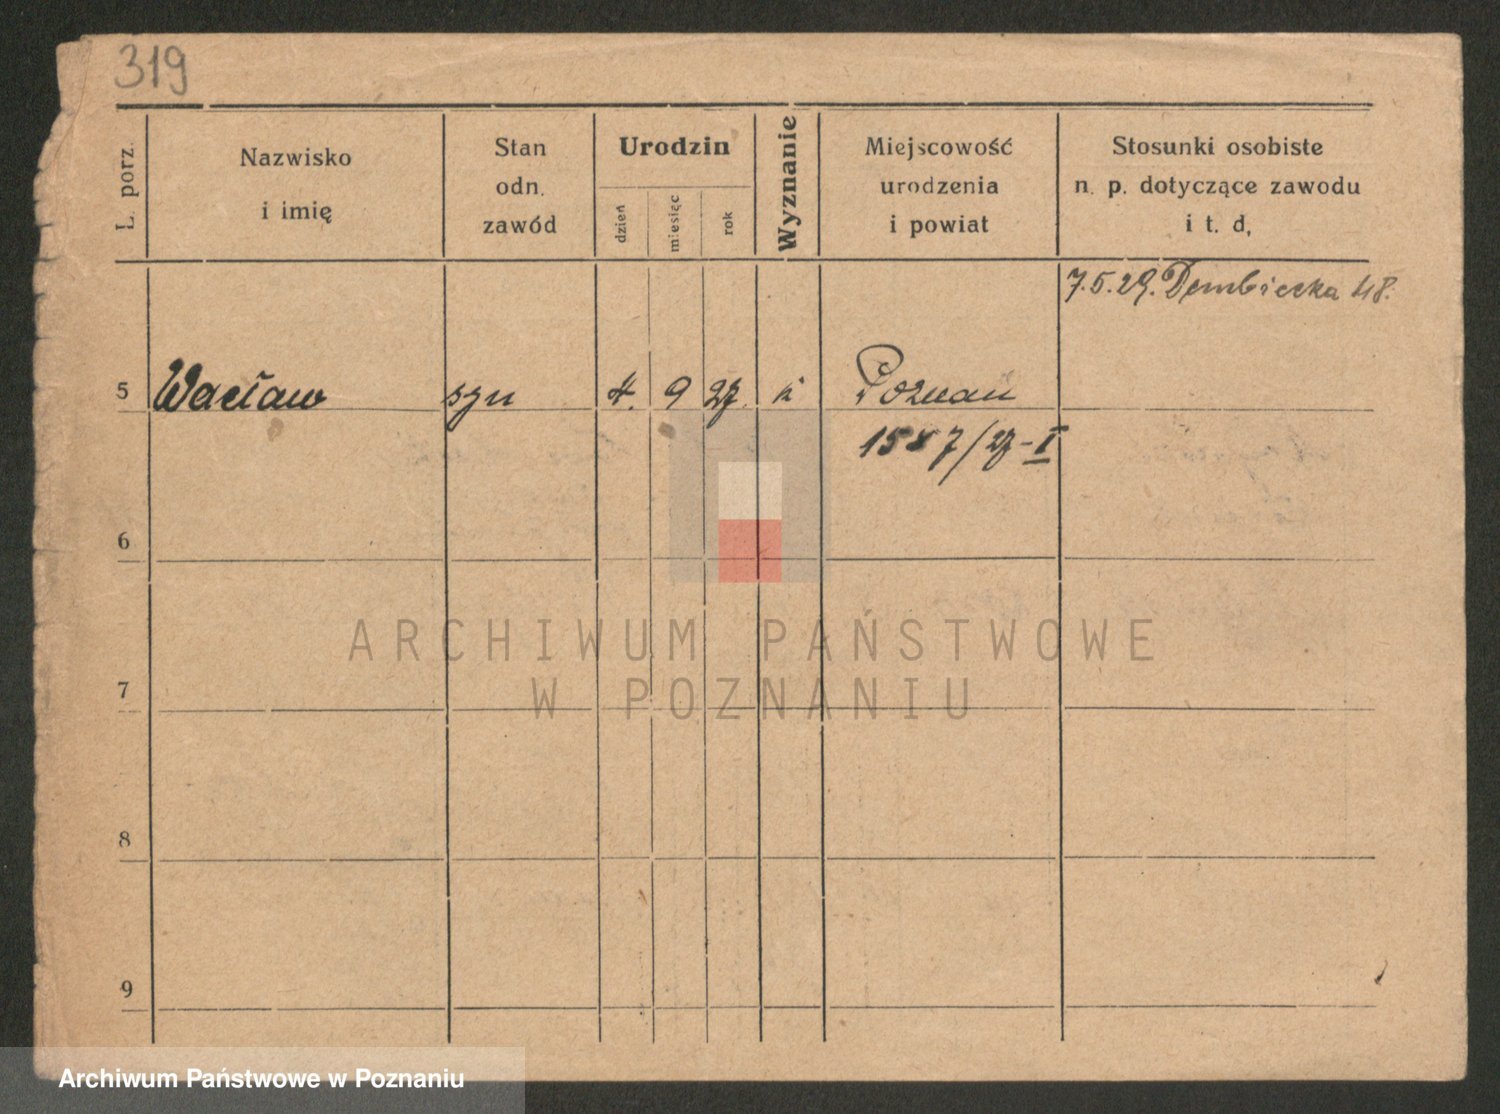 319
L. porz.
Nazwisko
i imię
Stan
odn.
zawód
Urodzin
dzień
miesięc
rok
Wyznanie
Miejscowość
urodzenia
i powiat
Stosunki osobiste
n. p. dotyczące zawodu
i t. d,
7.5.29. Dembiecka 48.
5 Wacław syn 4. 9 27. k Poznań
1587/27-I
6
7
8
9
ARCHIWUM PAŃSTWOWE
W POZNANIU
Archiwum Państwowe w Poznaniu